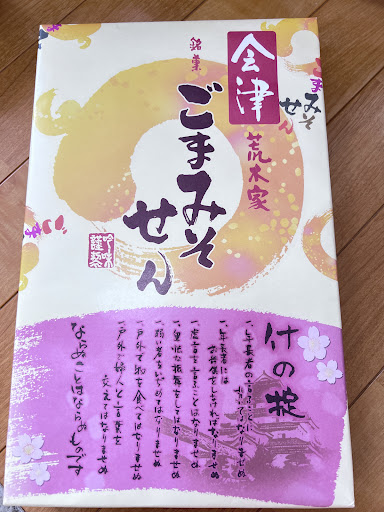 銘菓
会津
荒木家
ごまみそ
せん
吟味
謹製
ごまみそ
せん
什の掟
一、年長者の言ふことに
背いてはなりませぬ
一、年長者には
お辞儀をしなければなりませぬ
一、虚言を言ふことはなりませぬ
一、卑怯な振舞をしてはなりませぬ
一、弱い者をいぢめてはなりませぬ
一、戸外で物を食べてはなりませぬ
一、戸外で婦人と言葉を
交えてはなりませぬ
ならぬことはならぬものです